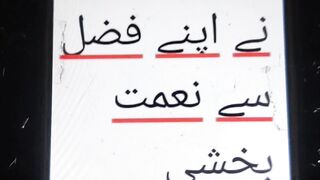 نے اپنے فضل
سے نعمت
بخشی